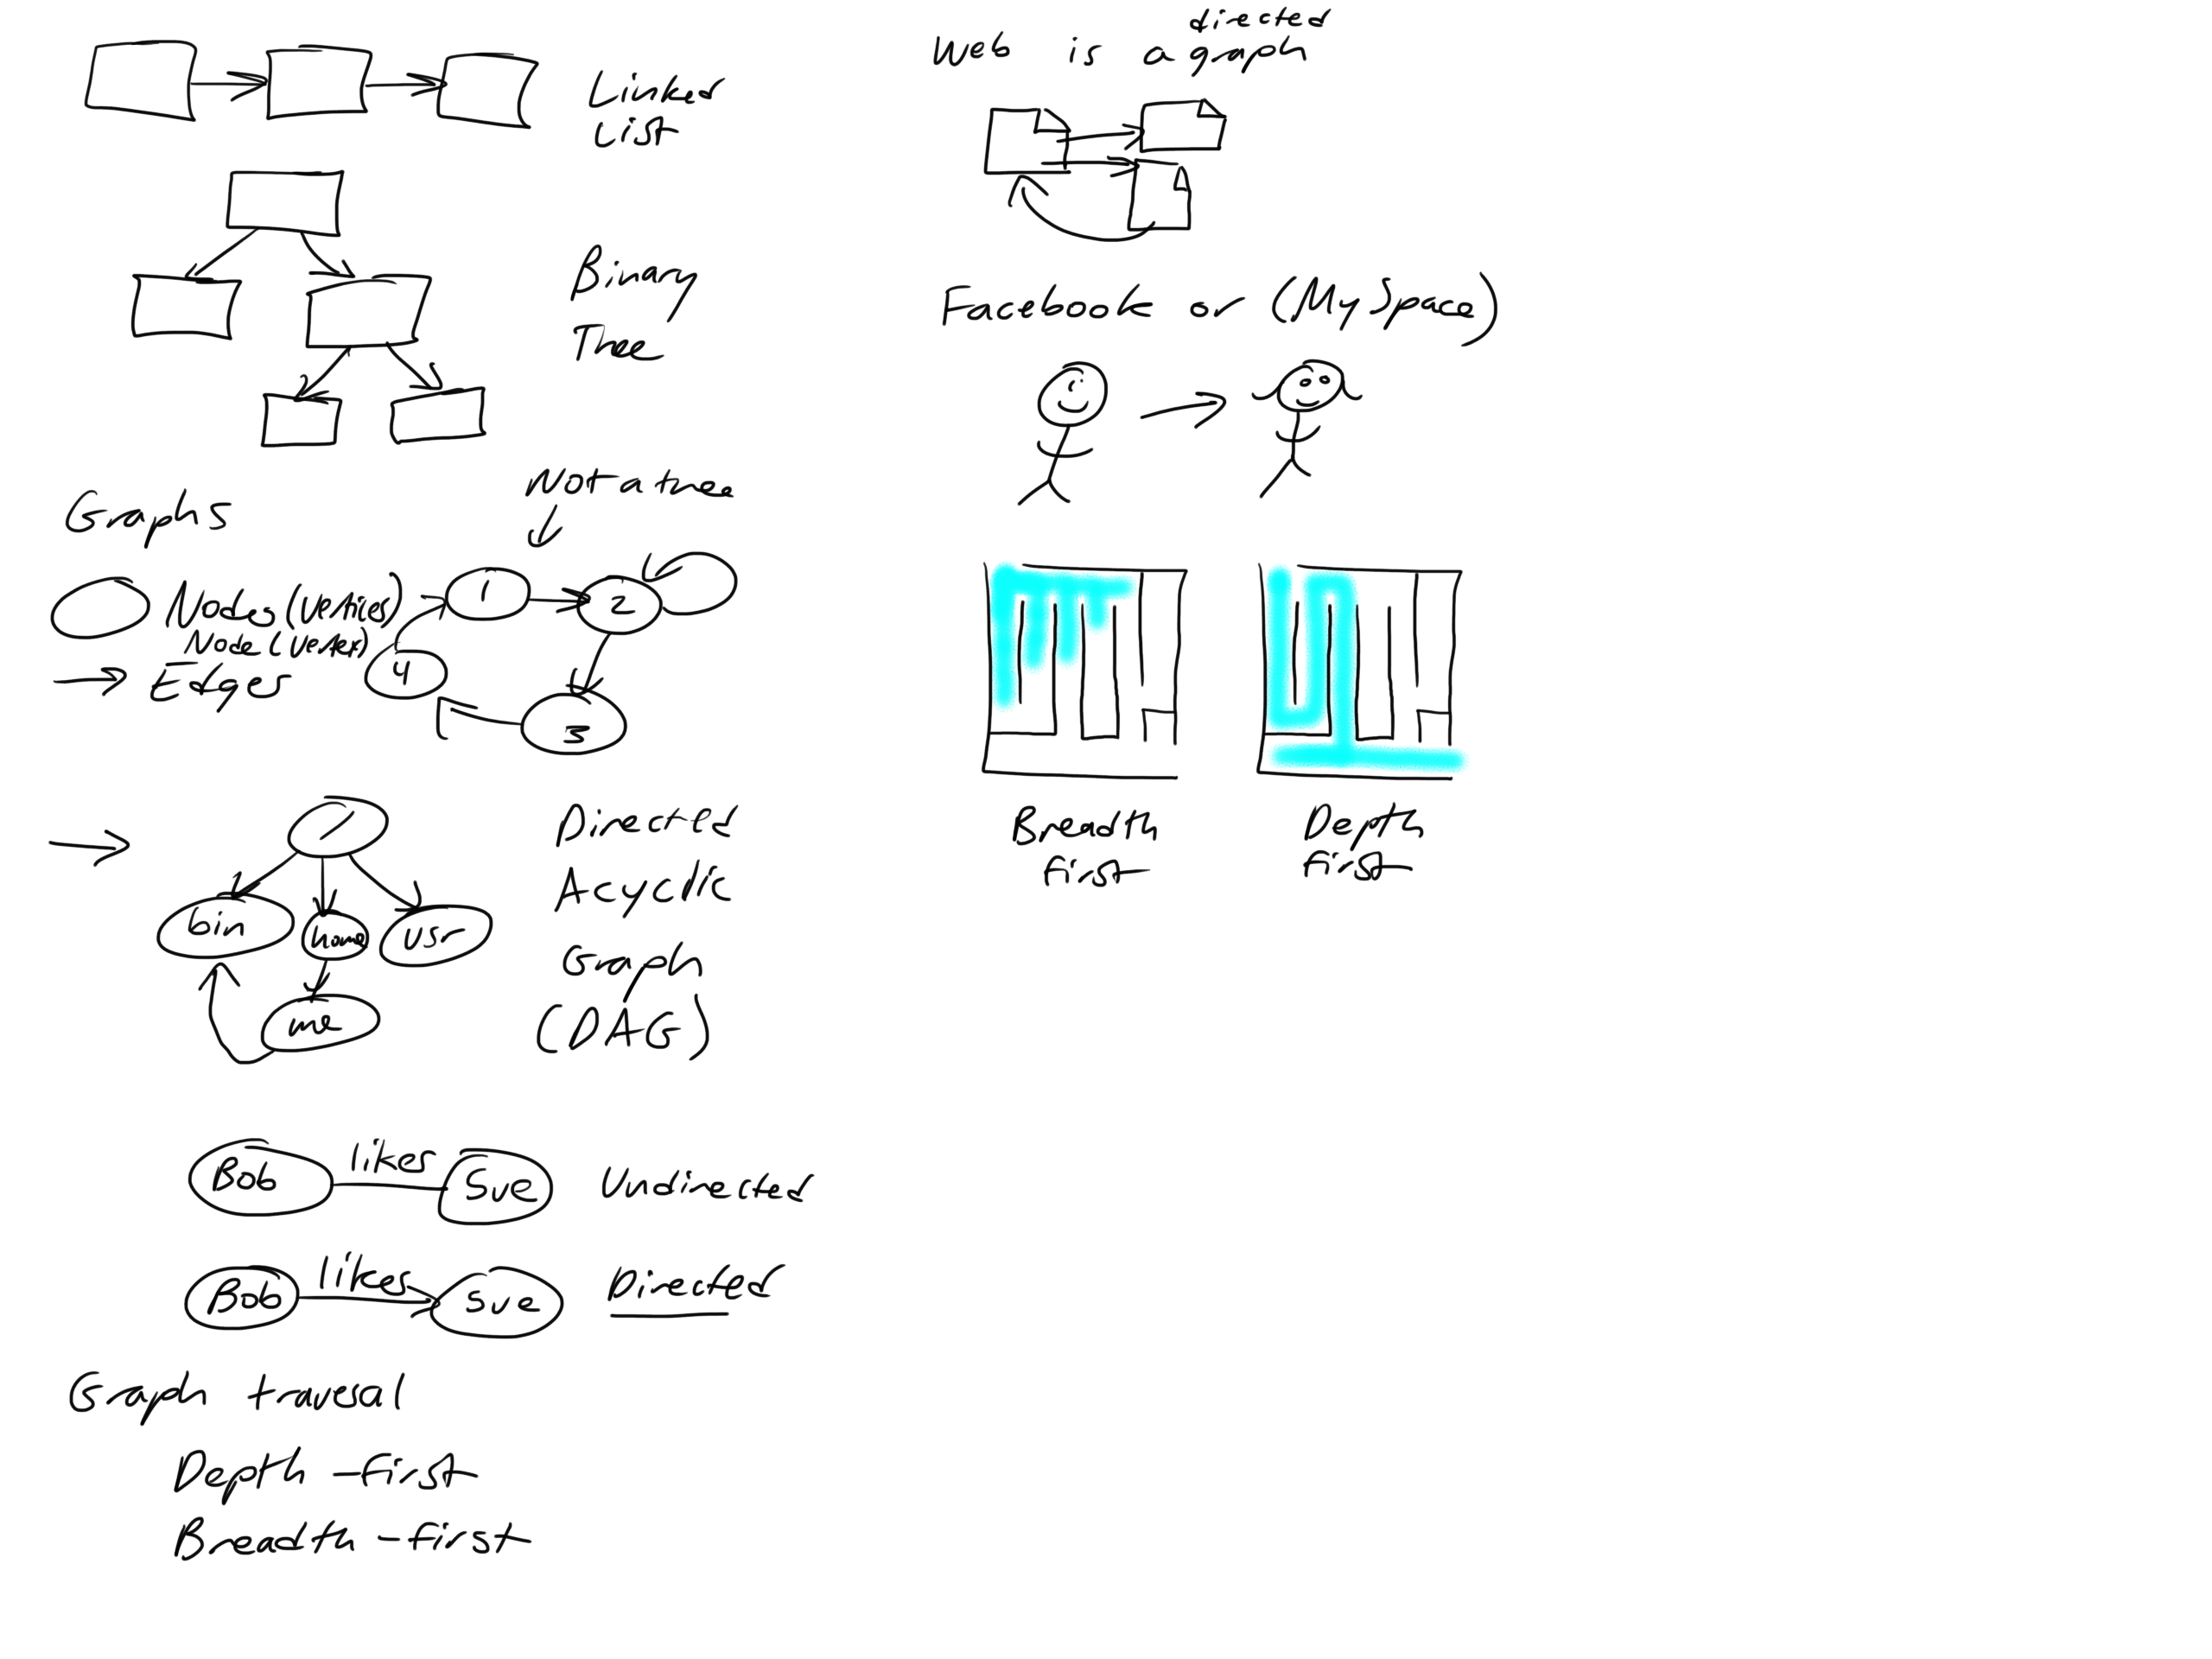 Linked
List
Binary
Tree
Graphs
Not a tree
Nodes (Vertices)
Node (Vertex)
Edges
1
2
3
4
/
bin
home
usr
me
Directed
Acyclic
Graph
(DAG)
Bob likes Sue Undirected
Bob likes Sue Directed
Graph traversal
Depth-first
Breadth-first
directed
Web is a graph
Facebook or (MySpace)
Breadth
first
Depth
first